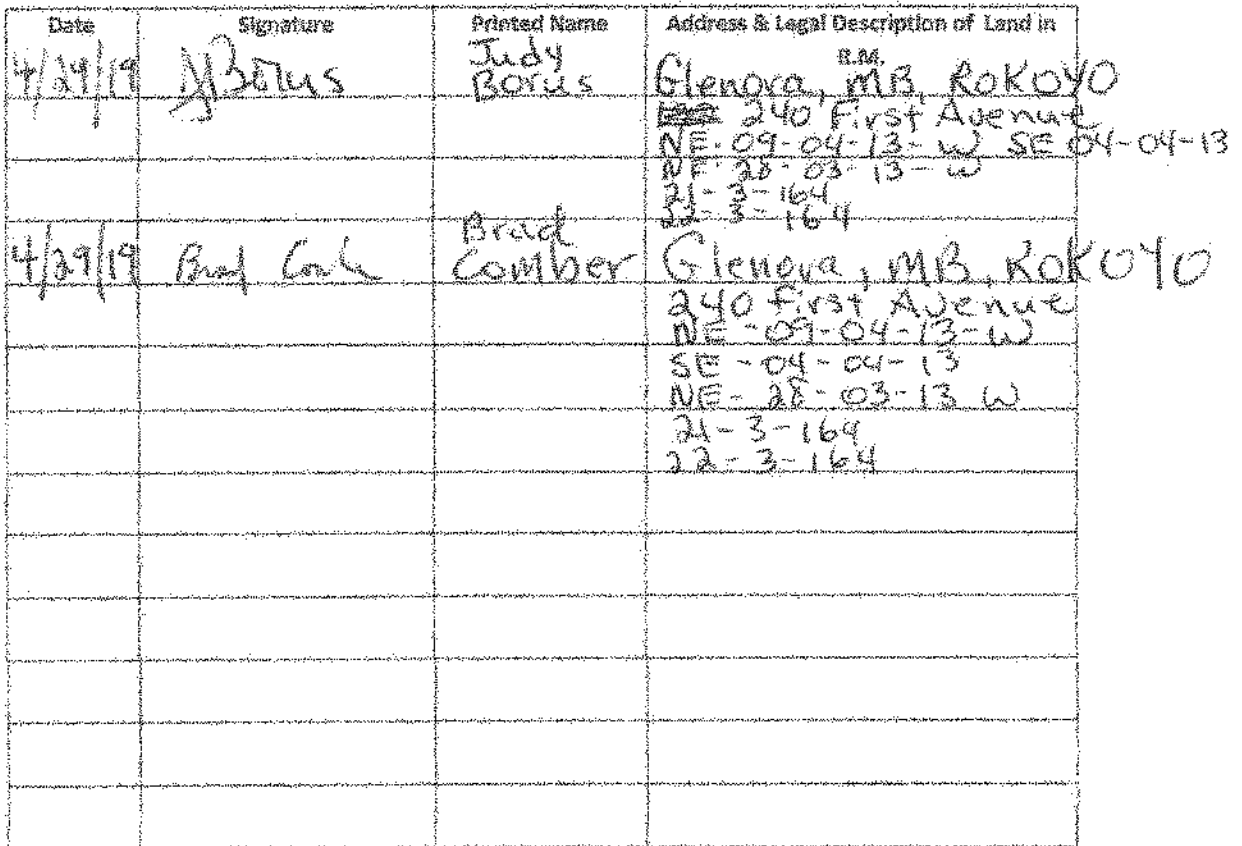 Date Signature Printed Name Address & Legal Description of Land in
R.M.
4/29/19 JBorus Judy
Borus Glenora, MB, ROKOYO
240 First Avenue
NE-09-04-13-W SE 04-04-13
NE-28-03-13-W
21-3-164
22-3-164
4/29/19 Brad Brad
Comber Glenora, MB, ROKOYO
240 First Avenue
NE-09-04-13-W
SE-04-04-13
NE-28-03-13 W
21-3-164
22-3-164